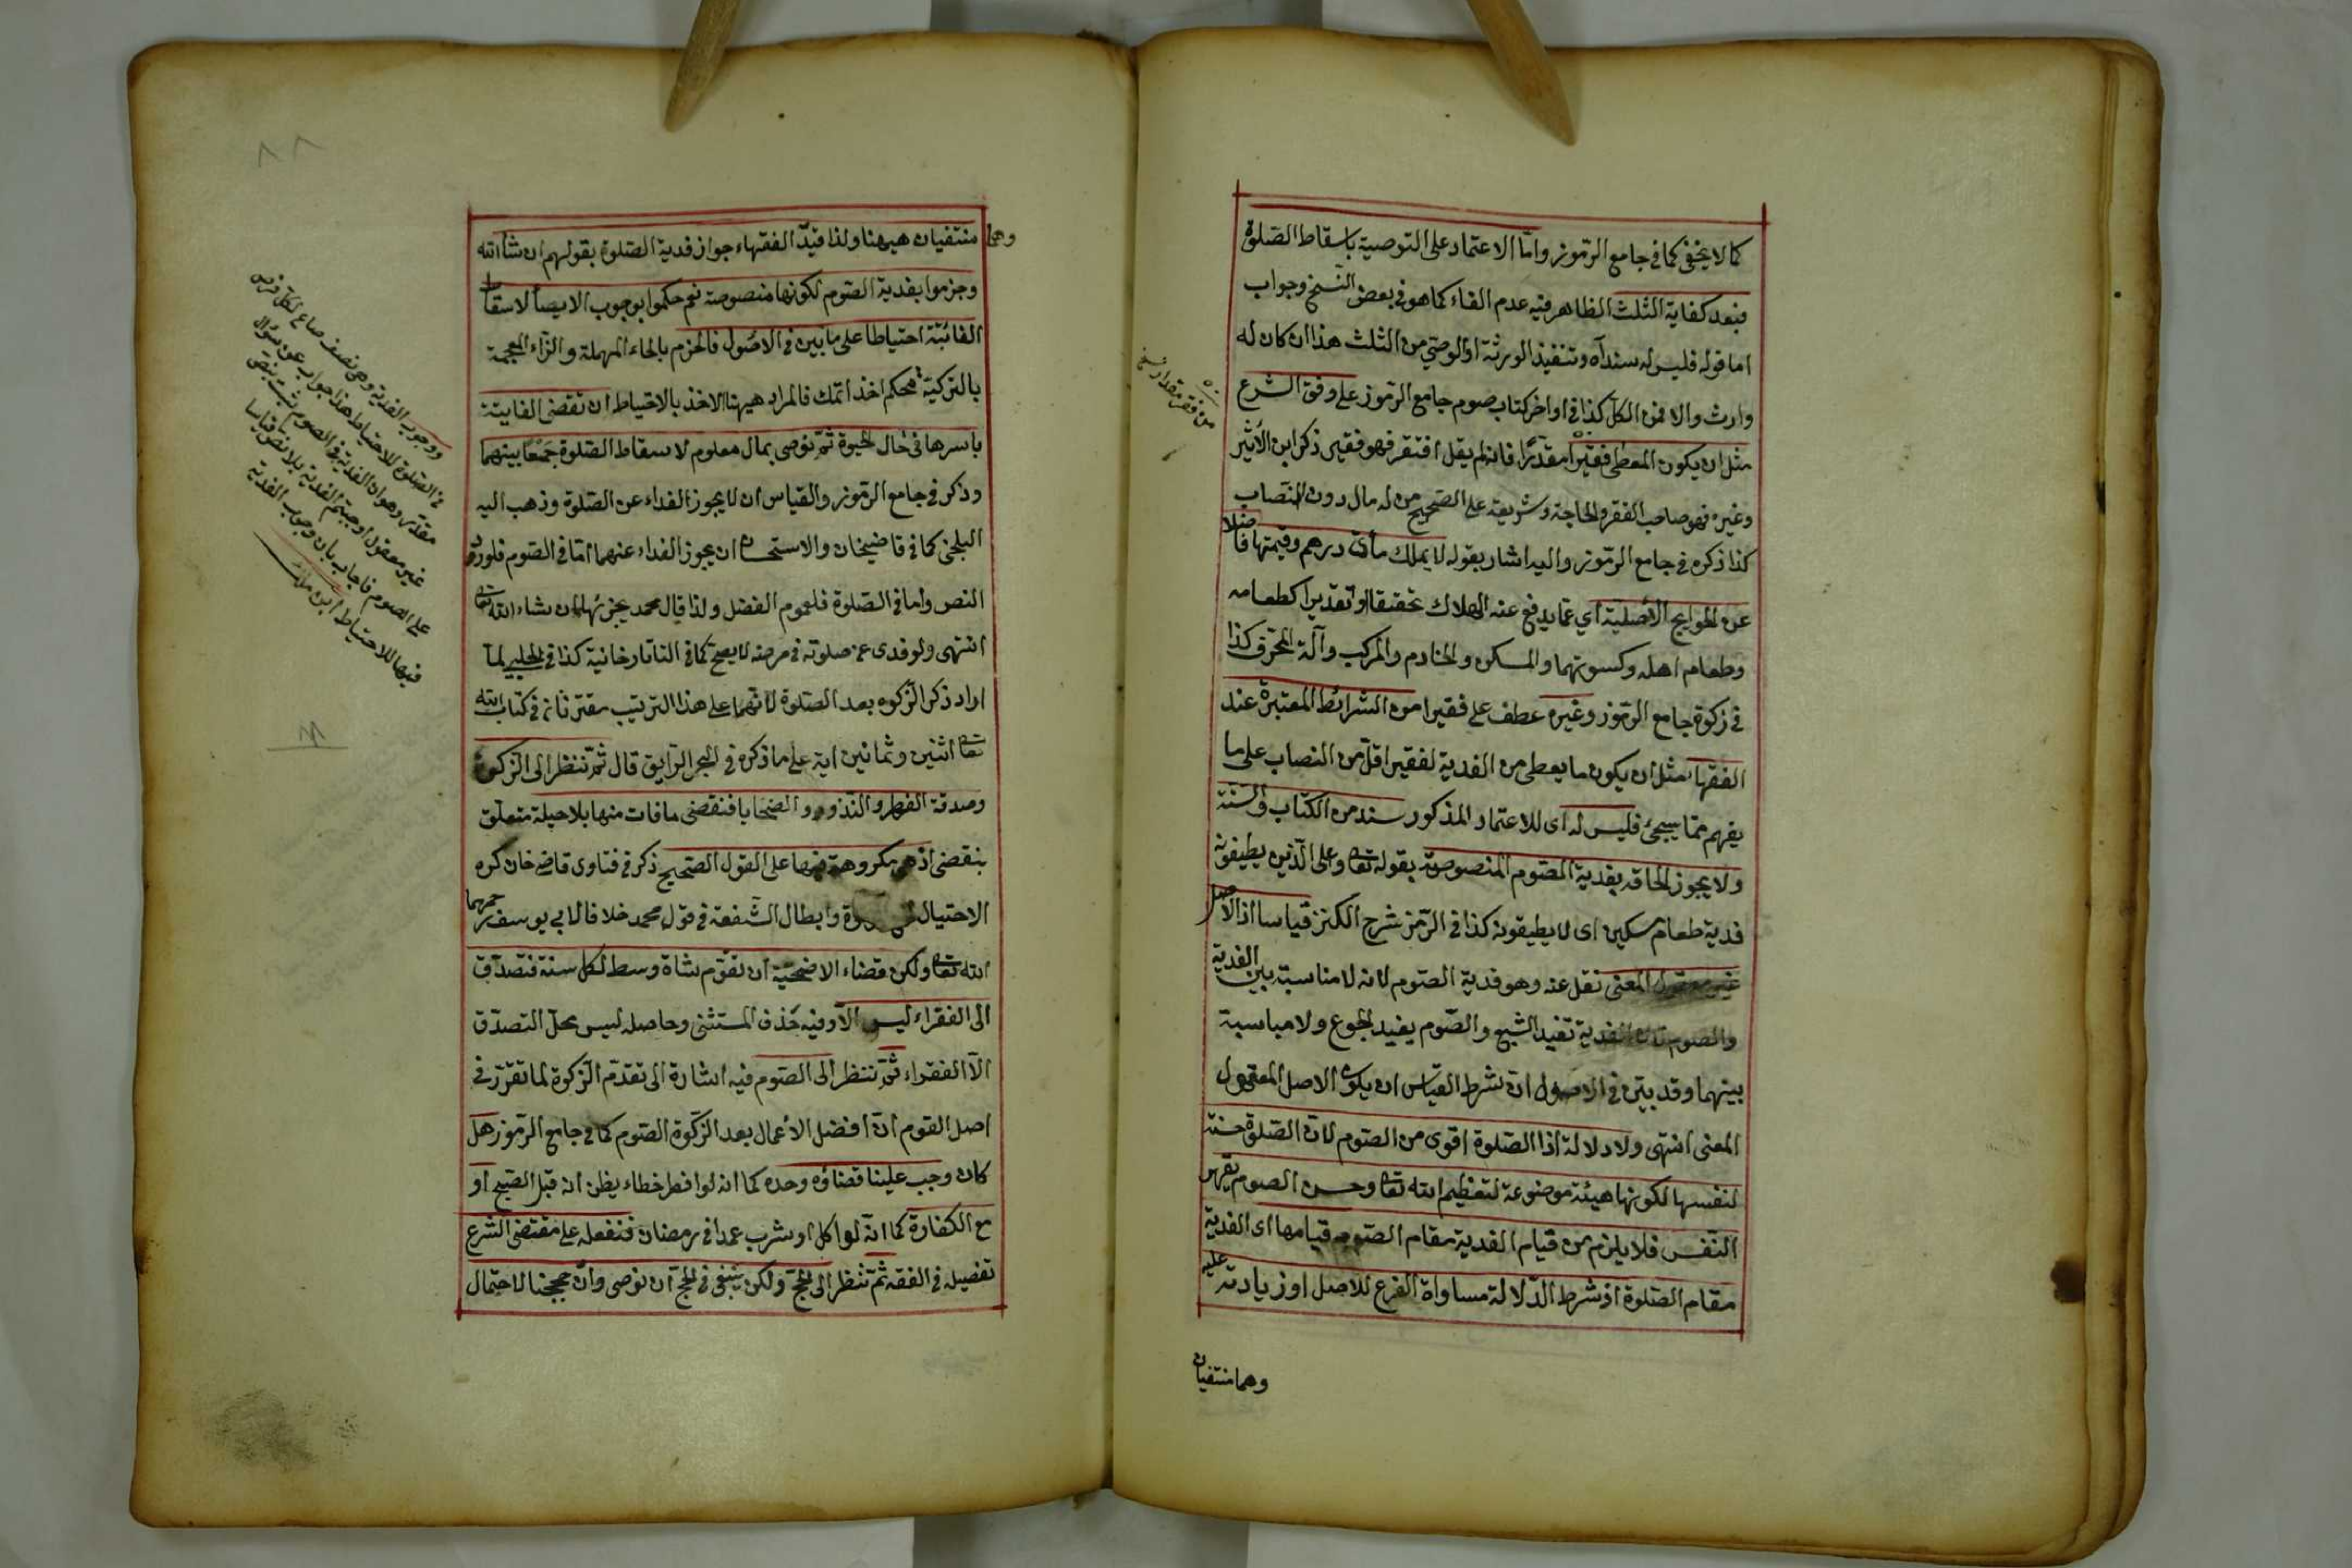 كما لا يخفى كما في جامع الرموز واما الاعتماد على التوصية باسقاط الصلوة
فبعد كفاية الثلث الظاهر فيه عدم الفاء كما هو في بعض النسخ وجواب
اما قوله فليس له سندآه وتنفيذ الورثة او الوصي من الثلث هذا ان كان له
وارث والا فمن الكل كذا في اواخر كتاب صوم جامع الرموز على وفق الشرع
مثل ان يكون المعطى فقيرا مقدرا فانه لم يقل افتقر فهو فقير ذكر ابن الأثير
وغيره فهو صاحب الفقر والحاجة وشريعة على الصحيح من له مال دون النصاب
كذا ذكره في جامع الرموز واليه اشار بقوله لا يملك مأتى درهم وقيمتها فاضلا
عن الحوايج الأصلية أي عما يدفع عنه الهلاك تحقيقا او تقديرا كطعامه
وطعام اهله وكسوتهما والمسكن والخادم والمركب وآلة المحترف كذا
في زكوة جامع الرموز وغيره عطف على فقيرا من الشرائط المعتبرة عند
الفقهاء مثل ان يكون ما يعطى من الفدية لفقير اقل من النصاب على ما
يفهم مما يجئ فليس له اى للاعتماد المذكور سند من الكتاب والسنة
ولا يجوز الحاقه بفدية الصوم المنصوصة بقوله تعالى وعلى الذين يطيقونه
فدية طعام مسكين اى لا يطيقونه كذا في الرمز شرح الكنز قياسا اذ الاصل
غير معقول المعنى نقل عنه وهو فدية الصوم لانه لا مناسبة بين الفدية
والصوم لان الفدية تفيد الشبع والصوم يفيد الجوع ولا مناسبة
بينهما وقد بين في الاصول ان شرط القياس ان يكون الاصل المعقول
المعنى انتهى ولا دلالة اذا الصلوة اقوى من الصوم لان الصلوة حسنة
لنفسها لكونها هيئة موضوعة لتعظيم الله تعالى وحسن الصوم بقهر
النفس فلا يلزم من قيام الفدية مقام الصوم قيامها اى الفدية
مقام الصلوة اذ شرط الدلالة مساواة الفرع للاصل او زيادته عليه
وهما منتفيان
وهما منتفيان هيهنا ولذا قيد الفقهاء جواز فدية الصلوة بقولهم ان شاء الله
وجزموا بفدية الصوم لكونها منصوصة نعم حكموا بوجوب الايصاء لاسقاط
الفائتة احتياطا على ما بين في الاصول فالحزم بالحاء المهملة والزاء المعجمة
بالتركية محكم اخذ اتمك فالمراد هيهنا الاخذ بالاحتياط ان تقضى الفايتة
باسرها في حال الحيوة ثم توصى بمال معلوم لاسقاط الصلوة جمعا بينهما
وذكر في جامع الرموز والقياس ان لا يجوز الفداء عن الصلوة وذهب اليه
البلخي كما في قاضيخان والاستحسان ان يجوز الفداء عنهما اما في الصوم فلورود
النص واما في الصلوة فلعموم الفضل ولذا قال محمد يجزيها ان شاء الله تعالى
انتهى ولو فدى عن صلوته في مرضه لا يصح كما في التاتارخانية كذا في الحلبي لما
اراد ذكر الزكوه بعد الصلوة لانهما على هذا الترتيب مقترنان في كتاب الله
تعالى اثنين وثمانين اية على ما ذكره في البحر الرايق قال ثم تنظر الى الزكوة
وصدقة الفطر والنذور والضحايا فنقضى ما فات منها بلا حيلة متعلق
بنقضى اذ هي مكروهة فيها على القول الصحيح ذكر في فتاوى قاضى خان كره
الاحتيال وابطال الشفعة في قول محمد خلافا لابي يوسف رحمهما
الله تعالى ولكن قضاء الاضحية ان تقوم شاة وسط لكل سنة فتصدق
الى الفقراء ليس الا وفيه حذف المستثنى وحاصله ليس محل التصدق
الا الفقراء ثم تنظر الى الصوم فيه اشارة الى تقدم الزكوة لما تقرر في
اصل القوم ان افضل الاعمال بعد الزكوة الصوم كما في جامع الرموز هل
كان وجب علينا قضاؤه وحده كما انه لو افطر خطاء يظن انه قبل الصبح او
مع الكفارة كما انه لو اكل او شرب عمدا في رمضان فنفعله على مقتضى الشرع
تفصيله في الفقه ثم تنظر الى الحج ولكن ينبغي في الحج ان نوصى وان حججنا لاحتمال
ووجوب الفدية وهى نصف صاع لكل فرض
في الصلوة للاحتياط هذا جواب عن سؤال
مقدر وهو ان الفدية في الصوم ثبت بنص
غير معقول اوجبتم الفدية بلا نص قياسا
على الصوم فاجاب بان وجوب الفدية
فيها للاحتياط ابن ملك
٨٨